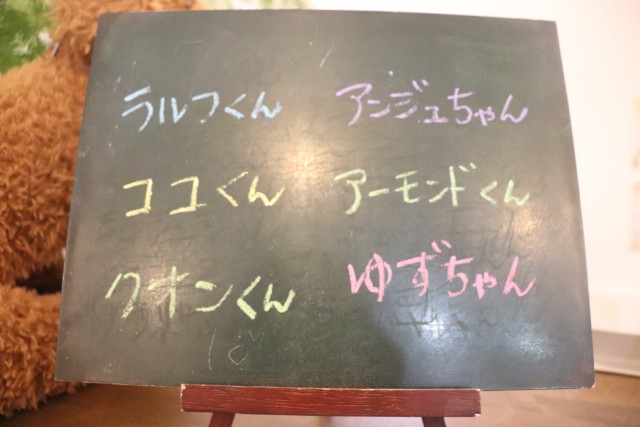 ラルフくん アンジュちゃん
ココくん アーモンドくん
クオンくん ゆずちゃん